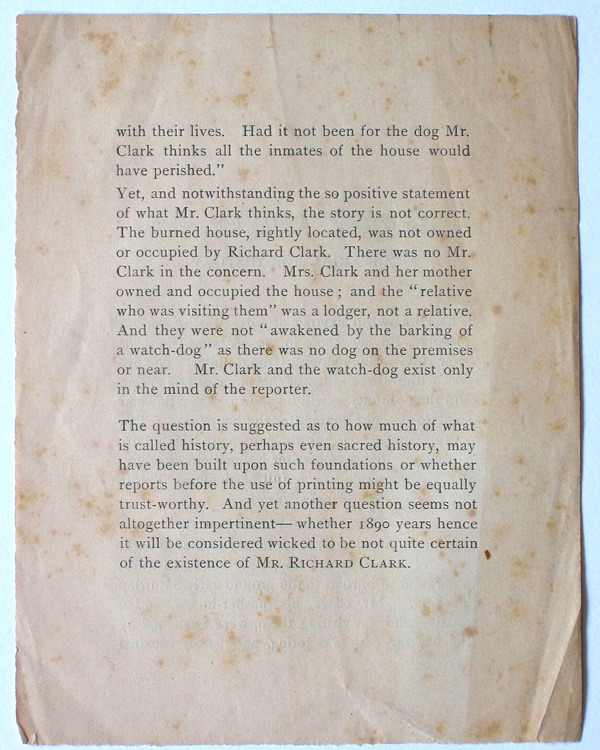 with their lives. Had it not been for the dog Mr.
Clark thinks all the inmates of the house would
have perished.”
Yet, and notwithstanding the so positive statement
of what Mr. Clark thinks, the story is not correct.
The burned house, rightly located, was not owned
or occupied by Richard Clark. There was no Mr.
Clark in the concern. Mrs. Clark and her mother
owned and occupied the house; and the “relative
who was visiting them” was a lodger, not a relative.
And they were not “awakened by the barking of
a watch-dog” as there was no dog on the premises
or near. Mr. Clark and the watch-dog exist only
in the mind of the reporter.
The question is suggested as to how much of what
is called history, perhaps even sacred history, may
have been built upon such foundations or whether
reports before the use of printing might be equally
trust-worthy. And yet another question seems not
altogether impertinent— whether 1890 years hence
it will be considered wicked to be not quite certain
of the existence of Mr. Richard Clark.